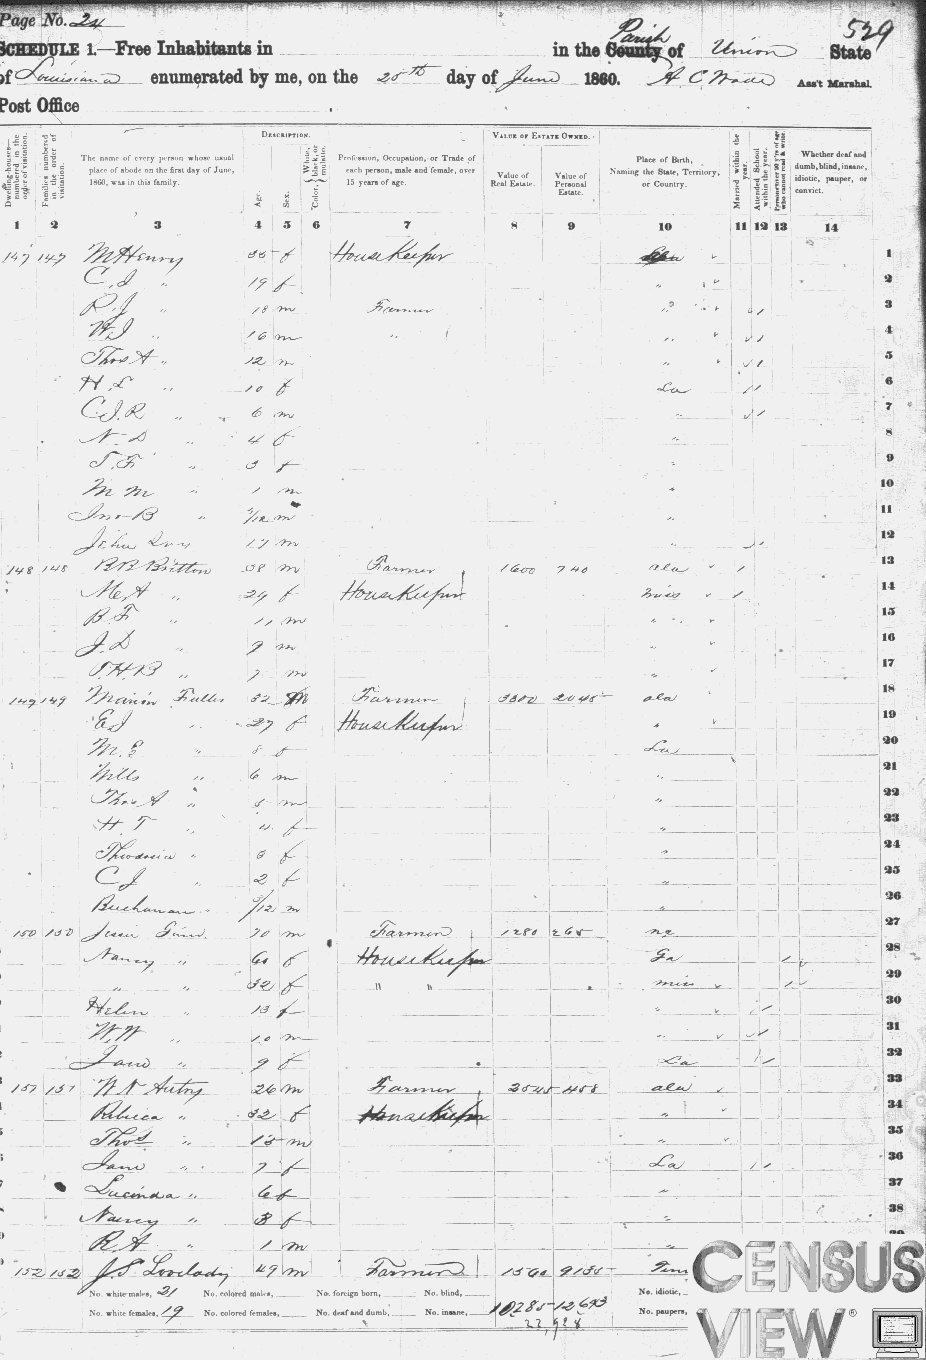 Page No. 24
539
SCHEDULE 1.—Free Inhabitants in in the County Parish of Union State
of Louisiana enumerated by me, on the 25th day of June 1860. A. C. Wade Ass't Marshal.
Post Office
DESCRIPTION. VALUE OF ESTATE OWNED.
Dwelling-houses—numbered in the order of visitation.
Families numbered in the order of visitation.
The name of every person whose usual place of abode on the first day of June, 1860, was in this family.
Age.
Sex.
Color, White, black, or mulatto.
Profession, Occupation, or Trade of each person, male and female, over 15 years of age.
Value of Real Estate.
Value of Personal Estate.
Place of Birth, Naming the State, Territory, or Country.
Married within the year.
Attended School within the year.
Persons over 20 y'rs of age who cannot read & write.
Whether deaf and dumb, blind, insane, idiotic, pauper, or convict.
1 2 3 4 5 6 7 8 9 10 11 12 13 14
147 147 M Henry 35 f HouseKeeper 1
C. J " 19 f " 2
R. J " 18 m Farmer " 3
W J " 16 m " " 4
Thos A " 12 m " 5
H. L " 10 f La 6
C. J. R " 6 m " 7
N. D " 4 f " 8
S. F " 3 f " 9
M M " 1 m " 10
Jno B " /12 m " 11
John 17 m " 12
148 148 B B Britton 38 m Farmer 1600 740 ala 13
" 29 f HouseKeeper miss 14
B F " 11 m " 15
J. D " 9 m " 16
T. H B " 7 m " 17
149 149 Marion Fuller 32 M Farmer 3300 2045 ala 18
E J " 27 f HouseKeeper " 19
M. E " 8 f La 20
Mills " 6 m " 21
Thos A " 5 m " 22
H. T " 4 f " 23
Theodosia " 3 f " 24
C J " 2 f " 25
Buchanan " /12 m " 26
150 150 Jessie Gunn 70 m Farmer 1280 265 nc 27
Nancy " 60 f HouseKeeper Ga 28
" " 32 f " " miss 29
Helen " 13 f " 30
W. W " 10 m " 31
Jane " 9 f La 32
151 151 W N Autry 26 m Farmer 2545 458 ala 33
Rebeca " 32 f HouseKeeper " 34
Thos " 13 m " 35
Jane " 7 f La 36
Lucinda " 6 f " 37
Nancy " 3 f " 38
R A " 1 m " 39
152 152 J. S Lovelady 49 m Farmer 1560 9135 Tenn
No. white males, 21 No. colored males, No. foreign born, No. blind, No. idiotic,
No. white females, 19 No. colored females, No. deaf and dumb, No. insane, 10285 12643 No. paupers,
22,928
CENSUS
VIEW®